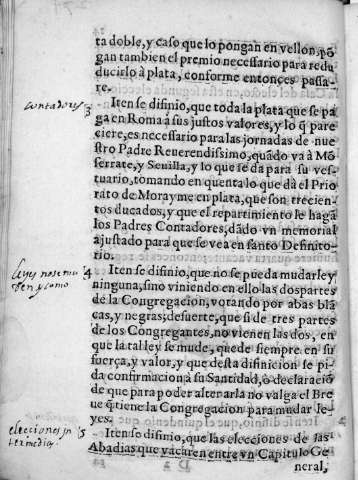 ta doble, y caso que lo pongan en vellon, põ
gan tambien el premio necessario para redu
ducirlo à plata, conforme entonçes passa-
re.
contadores 3 Iten se difinio, que toda la plata que se pa
ga en Roma à sus justos valores, y lo q̃ pare
ciere, es necessario para las jornadas de nue
stro Padre Reuerendissimo, quãdo va à Mõ
serrate, y Seuilla, y lo que se da para su ves-
tuario, tomando en quenta lo que dà el Prio
rato de Morayme en plata, que son trecien-
tos ducados, y que el repartimiento le hagã
los Padres Contadores, dãdo vn memorial
ajustado para que se vea en santo Definito-
rio.
leyes nose mu 4 Iten se difinio, que no se pueda mudar ley
den y como ninguna, sino viniendo en ello las dos partes
de la Congregacion, votando por abas blã
cas, y negras; de suerte, que si de tres partes
de los Congregantes, no vienen las dos, en
que la tal ley se mude, quede siempre en su
fuerça, y valor, y que desta difinicion se pi-
da confirmaciõ à su Santidad, ò declaraciõ
de que para poder alterarla no valga el Bre
ue q̃ tiene la Congregacion para mudar le-
yes.
elecciones in 5 Iten se difinio, que las elecciones de las
termedias Abadias que vacaren entre vn Capitulo Ge
neral,